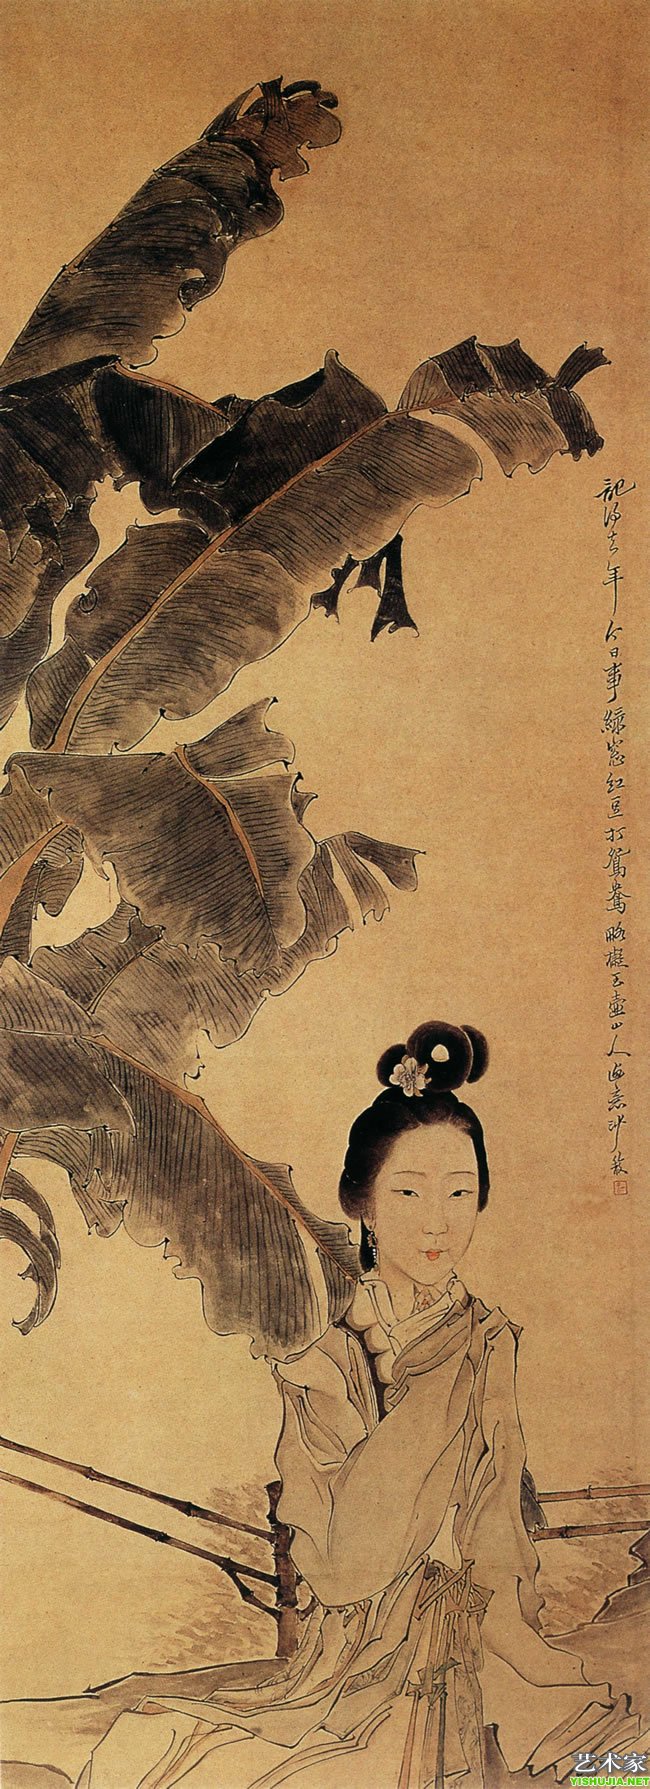 記得去年今日事綠窗紅豆打鴛鴦略擬玉壺山人画意沙馥
艺术家
YISHUJIA.NET